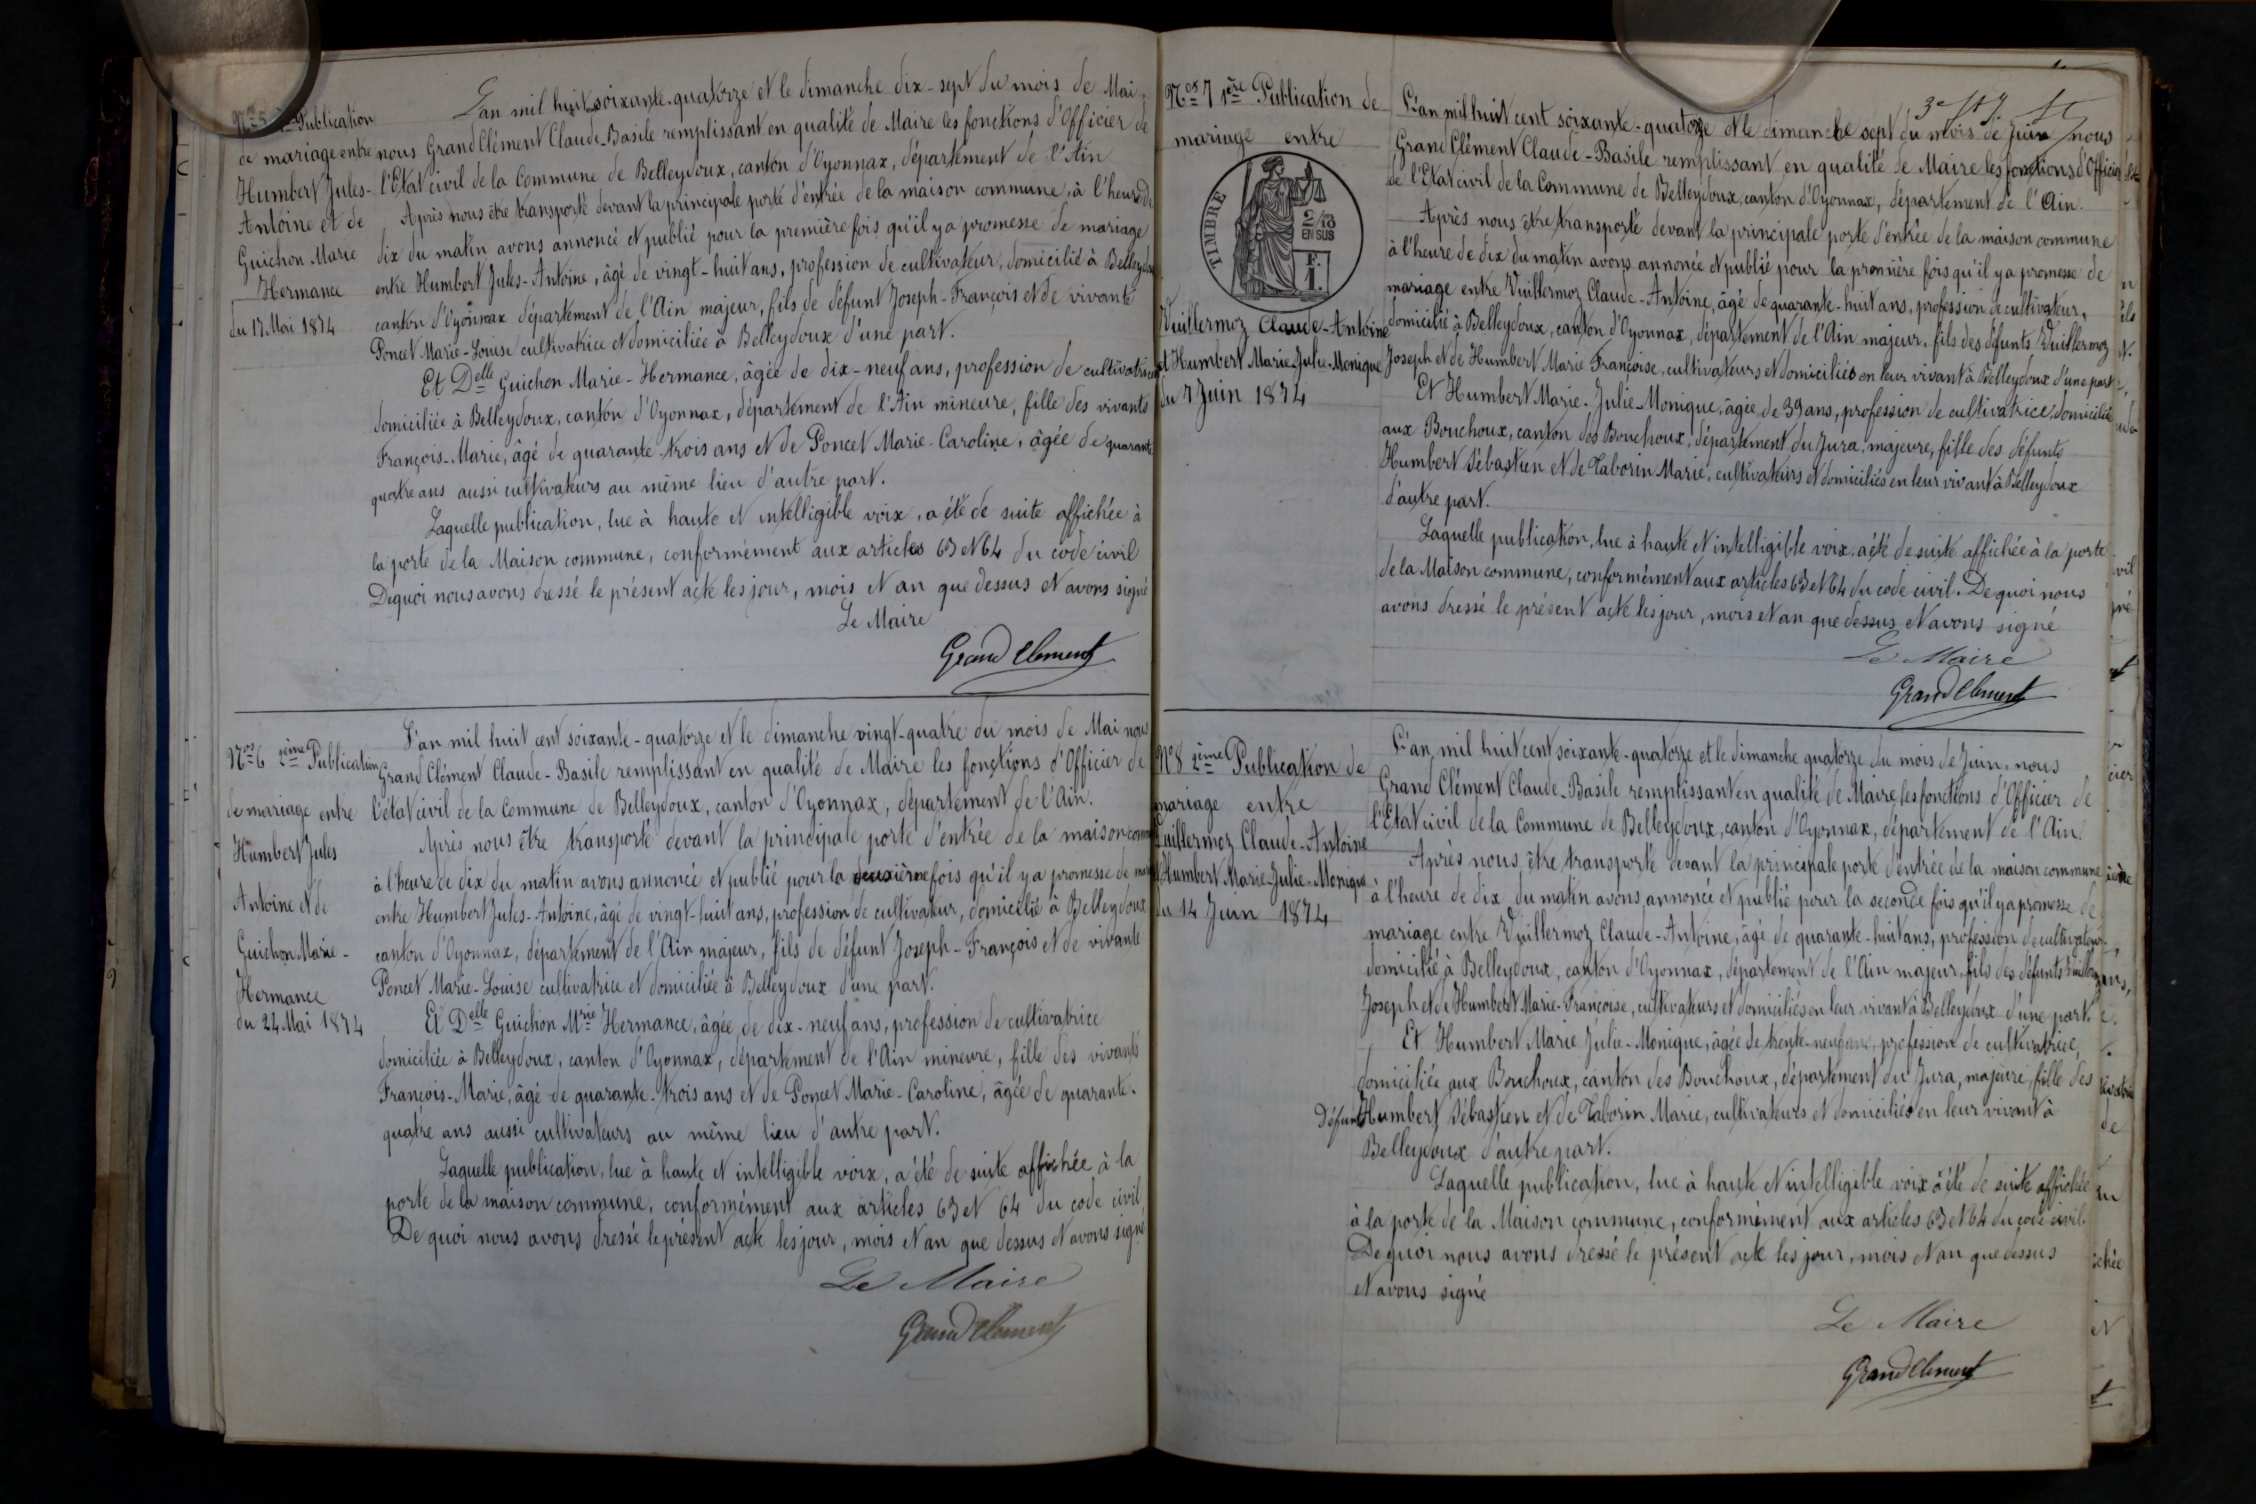 Nos 5 1ère Publication
de mariage entre
Humbert Jules-
Antoine et de
Guichon Marie
Hermance
du 17 Mai 1874
L'an mil huit soixante-quatorze et le dimanche dix-sept du mois de Mai
nous Grand Clément Claude-Basile remplissant en qualité de Maire les fonctions d'Officier de
l'Etat civil de la Commune de Belleydoux, canton d'Oyonnax, département de l'Ain
Après nous être transporté devant la principale porte d'entrée de la maison commune, à l'heure de
dix du matin avons annoncé et publié pour la première fois qu'il y a promesse de mariage
entre Humbert Jules-Antoine, âgé de vingt-huit ans, profession de cultivateur, domicilié à Belleydoux
canton d'Oyonnax département de l'Ain majeur, fils de défunt Joseph-François et de vivante
Poncet Marie-Louise cultivatrice et domiciliée à Belleydoux d'une part.
Et Delle Guichon Marie-Hermance, âgée de dix-neuf ans, profession de cultivatrice
domiciliée à Belleydoux, canton d'Oyonnax, département de l'Ain mineure, fille des vivants
François-Marie, âgé de quarante-trois ans et de Poncet Marie-Caroline, âgée de quarante
quatre ans aussi cultivateurs au même lieu d'autre part.
Laquelle publication, lue à haute et intelligible voix, a été de suite affichée à
la porte de la Maison commune, conformément aux articles 63 et 64 du code civil
De quoi nous avons dressé le présent acte les jour, mois et an que dessus et avons signé
Le Maire
Grand Clement
Nos 6 2ème Publication
de mariage entre
Humbert Jules
Antoine et de
Guichon Marie-
Hermance
du 24 Mai 1874
L'an mil huit cent soixante-quatorze et le dimanche vingt-quatre du mois de Mai nous
Grand Clément Claude-Basile remplissant en qualité de Maire les fonctions d'Officier de
l'état civil de la Commune de Belleydoux, canton d'Oyonnax, département de l'Ain.
Après nous être transporté devant la principale porte d'entrée de la maison
à l'heure de dix du matin avons annoncé et publié pour la deuxième fois qu'il y a promesse de
entre Humbert Jules-Antoine, âgé de vingt-huit ans, profession de cultivateur, domicilié à Belleydoux
canton d'Oyonnax, département de l'Ain majeur, fils de défunt Joseph-François et de vivante
Poncet Marie-Louise cultivatrice et domiciliée à Belleydoux d'une part.
Et Delle Guichon Mrie Hermance, âgée de dix-neuf ans, profession de cultivatrice
domiciliée à Belleydoux, canton d'Oyonnax, département de l'Ain mineure, fille des vivants
François-Marie, âgé de quarante-trois ans et de Poncet Marie-Caroline, âgée de quarante-
quatre ans aussi cultivateurs au même lieu d'autre part.
Laquelle publication, lue à haute et intelligible voix, a été de suite affichée à la
porte de la maison commune, conformément aux articles 63 et 64 du code civil
De quoi nous avons dressé le présent acte les jour, mois et an que dessus et avons signé
Le Maire
Grand Clement
Nos 7 1ère Publication de
mariage entre
TIMBRE
2/10
EN SUS
F.
1.
Vuillermoz Claude-Antoine
et Humbert Marie-Julie-Monique
du 7 Juin 1874
L'an mil huit cent soixante-quatorze et le dimanche sept du mois de Juin nous
Grand Clément Claude-Basile remplissant en qualité de Maire les fonctions d'Officier
de l'Etat civil de la Commune de Belleydoux, canton d'Oyonnax, département de l'Ain.
Après nous être transporté devant la principale porte d'entrée de la maison commune
à l'heure de dix du matin avons annoncé et publié pour la première fois qu'il y a promesse de
mariage entre Vuillermoz Claude-Antoine, âgé de quarante-huit ans, profession de cultivateur,
domicilié à Belleydoux, canton d'Oyonnax, département de l'Ain majeur, fils des défunts Vuillermoz
Joseph et de Humbert Marie Françoise, cultivateurs et domiciliés en leur vivant à Belleydoux d'une part
Et Humbert Marie-Julie-Monique, âgée de 39 ans, profession de cultivatrice, domiciliée
aux Bouchoux, canton des Bouchoux, département du Jura, majeure, fille des défunts
Humbert Sébastien et de Taborin Marie, cultivateurs et domiciliés en leur vivant à Belleydoux
d'autre part.
Laquelle publication, lue à haute et intelligible voix, a été de suite affichée à la porte
de la Maison commune, conformément aux articles 63 et 64 du code civil. De quoi nous
avons dressé le présent acte les jour, mois et an que dessus et avons signé
Le Maire
Grand Clement
No 8 2ème Publication de
mariage entre
Vuillermoz Claude-Antoine
Humbert Marie-Julie-Monique
du 14 Juin 1874
L'an mil huit cent soixante-quatorze et le dimanche quatorze du mois de Juin, nous
Grand Clément Claude-Basile remplissant en qualité de Maire les fonctions d'Officier de
l'Etat civil de la Commune de Belleydoux, canton d'Oyonnax, département de l'Ain.
Après nous être transporté devant la principale porte d'entrée de la maison commune
à l'heure de dix du matin avons annoncé et publié pour la seconde fois qu'il y a promesse de
mariage entre Vuillermoz Claude-Antoine, âgé de quarante-huit ans, profession de cultivateur
domicilié à Belleydoux, canton d'Oyonnax, département de l'Ain majeur, fils des défunts Vuillermoz
Joseph et de Humbert Marie-Françoise, cultivateurs et domiciliés en leur vivant à Belleydoux d'une part.
Et Humbert Marie Julie-Monique, âgée de trente-neuf ans, profession de cultivatrice,
domiciliée aux Bouchoux, canton des Bouchoux, département du Jura, majeure, fille des
Défunts Humbert Sébastien et de Taborin Marie, cultivateurs et domiciliés en leur vivant à
Belleydoux d'autre part.
Laquelle publication, lue à haute et intelligible voix a été de suite affichée
à la porte de la Maison commune, conformément aux articles 63 et 64 du code civil.
De quoi nous avons dressé le présent acte les jour, mois et an que dessus
et avons signé
Le Maire
Grand Clement